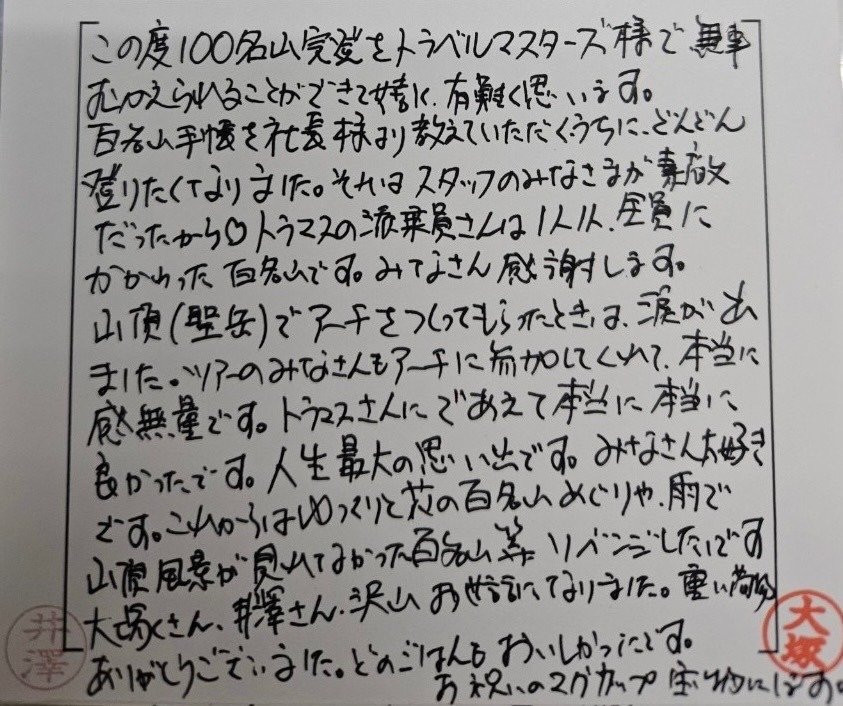 この度100名山完登をトラベルマスターズ様で無事
むかえられることができて嬉しく、有難く思います。
百名山手帳を社長様より教えていただくうちに、どんどん
登りたくなりました。それはスタッフのみなさまが素敵
だったから♡トラマスの添乗員さんは1人1人、全員に
かかわった百名山です。みなさん感謝します。
山頂(聖岳)でアーチをつくってもらったときは、涙が出
ました。ツアーのみなさんもアーチに参加してくれて、本当に
感無量です。トラマスさんにであえて本当に本当に
良かったです。人生最大の思い出です。みなさん大好き
です。これからはゆっくりと花の百名山めぐりや、雨で
山頂風景が見れてなかった百名山等リベンジしたいです
大塚さん、井澤さん、沢山お世話になりました。重い荷物
ありがとうございました。どのごはんもおいしかったです。
お祝いのマグカップ宝物にします。
井澤
大塚